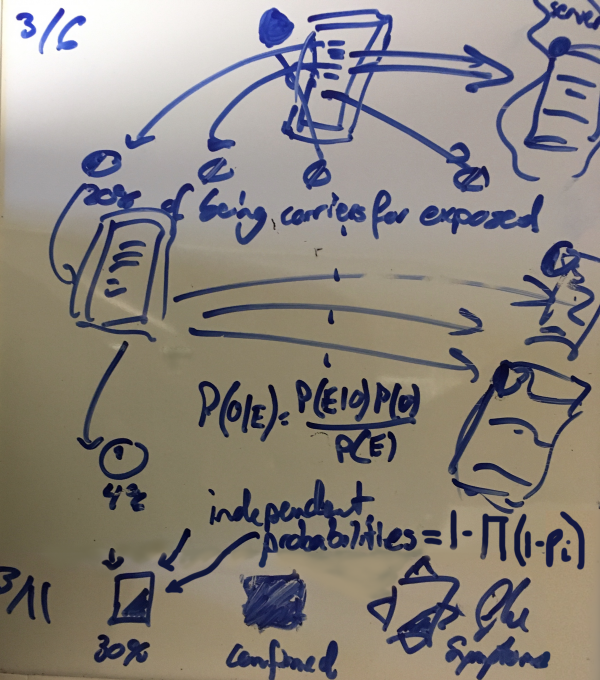 3/6
server
20% of being carriers for exposed
P(O|E) = P(E|O)P(O)
P(E)
4%
independent
probabilities = 1 - Π(1-Pi)
3/11
30%
confirmed
flu
symptoms